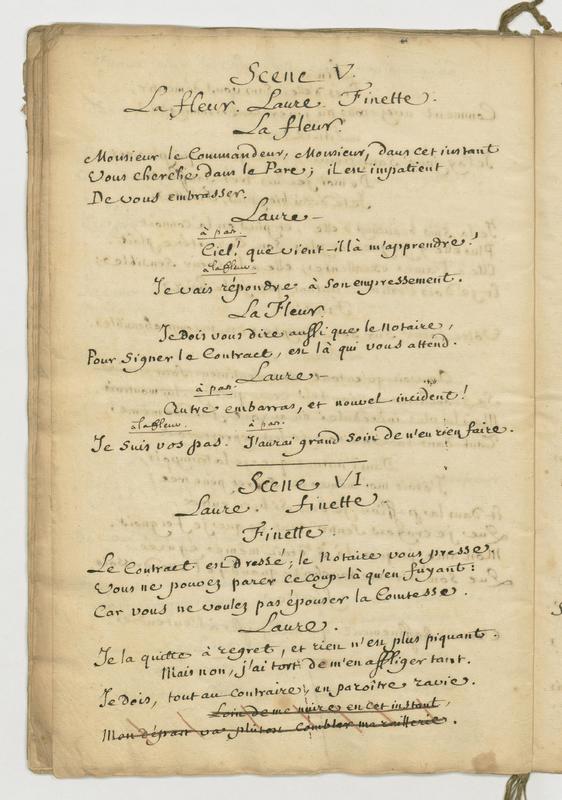 Scene V.
La fleur. Laure. Finette.
La fleur.
Monsieur le Commandeur, Monsieur, dans cet instant
Vous cherche dans le Parc; il est impatient
De vous embrasser.
Laure
à par.
Ciel! que vient-il là m'apprendre!
à la fleur.
Je vais répondre à son empressement.
La Fleur.
Je dois vous dire aussi que le Notaire,
Pour signer le Contract, est là qui vous attend.
Laure
à par.
Autre embarras, et nouvel incident!
à la fleur. à par.
Je suis vos pas. J'aurai grand soin de n'en rien faire.
Scene VI.
Laure. finette.
Finette.
Le Contract est dressé; le Notaire vous presse,
Vous ne pouvez parer ce coup-là qu'en fuyant:
Car vous ne voulez pas épouser la Comtesse.
Laure.
Je la quitte à regret, et rien n'est plus piquant.
Mais non, j'ai tort de m'en affliger tant.
Je dois, tout au contraire, en paroître ravie.
Loin de me nuire en cet instant,
Mon départ va plutost combler ma raillerie.